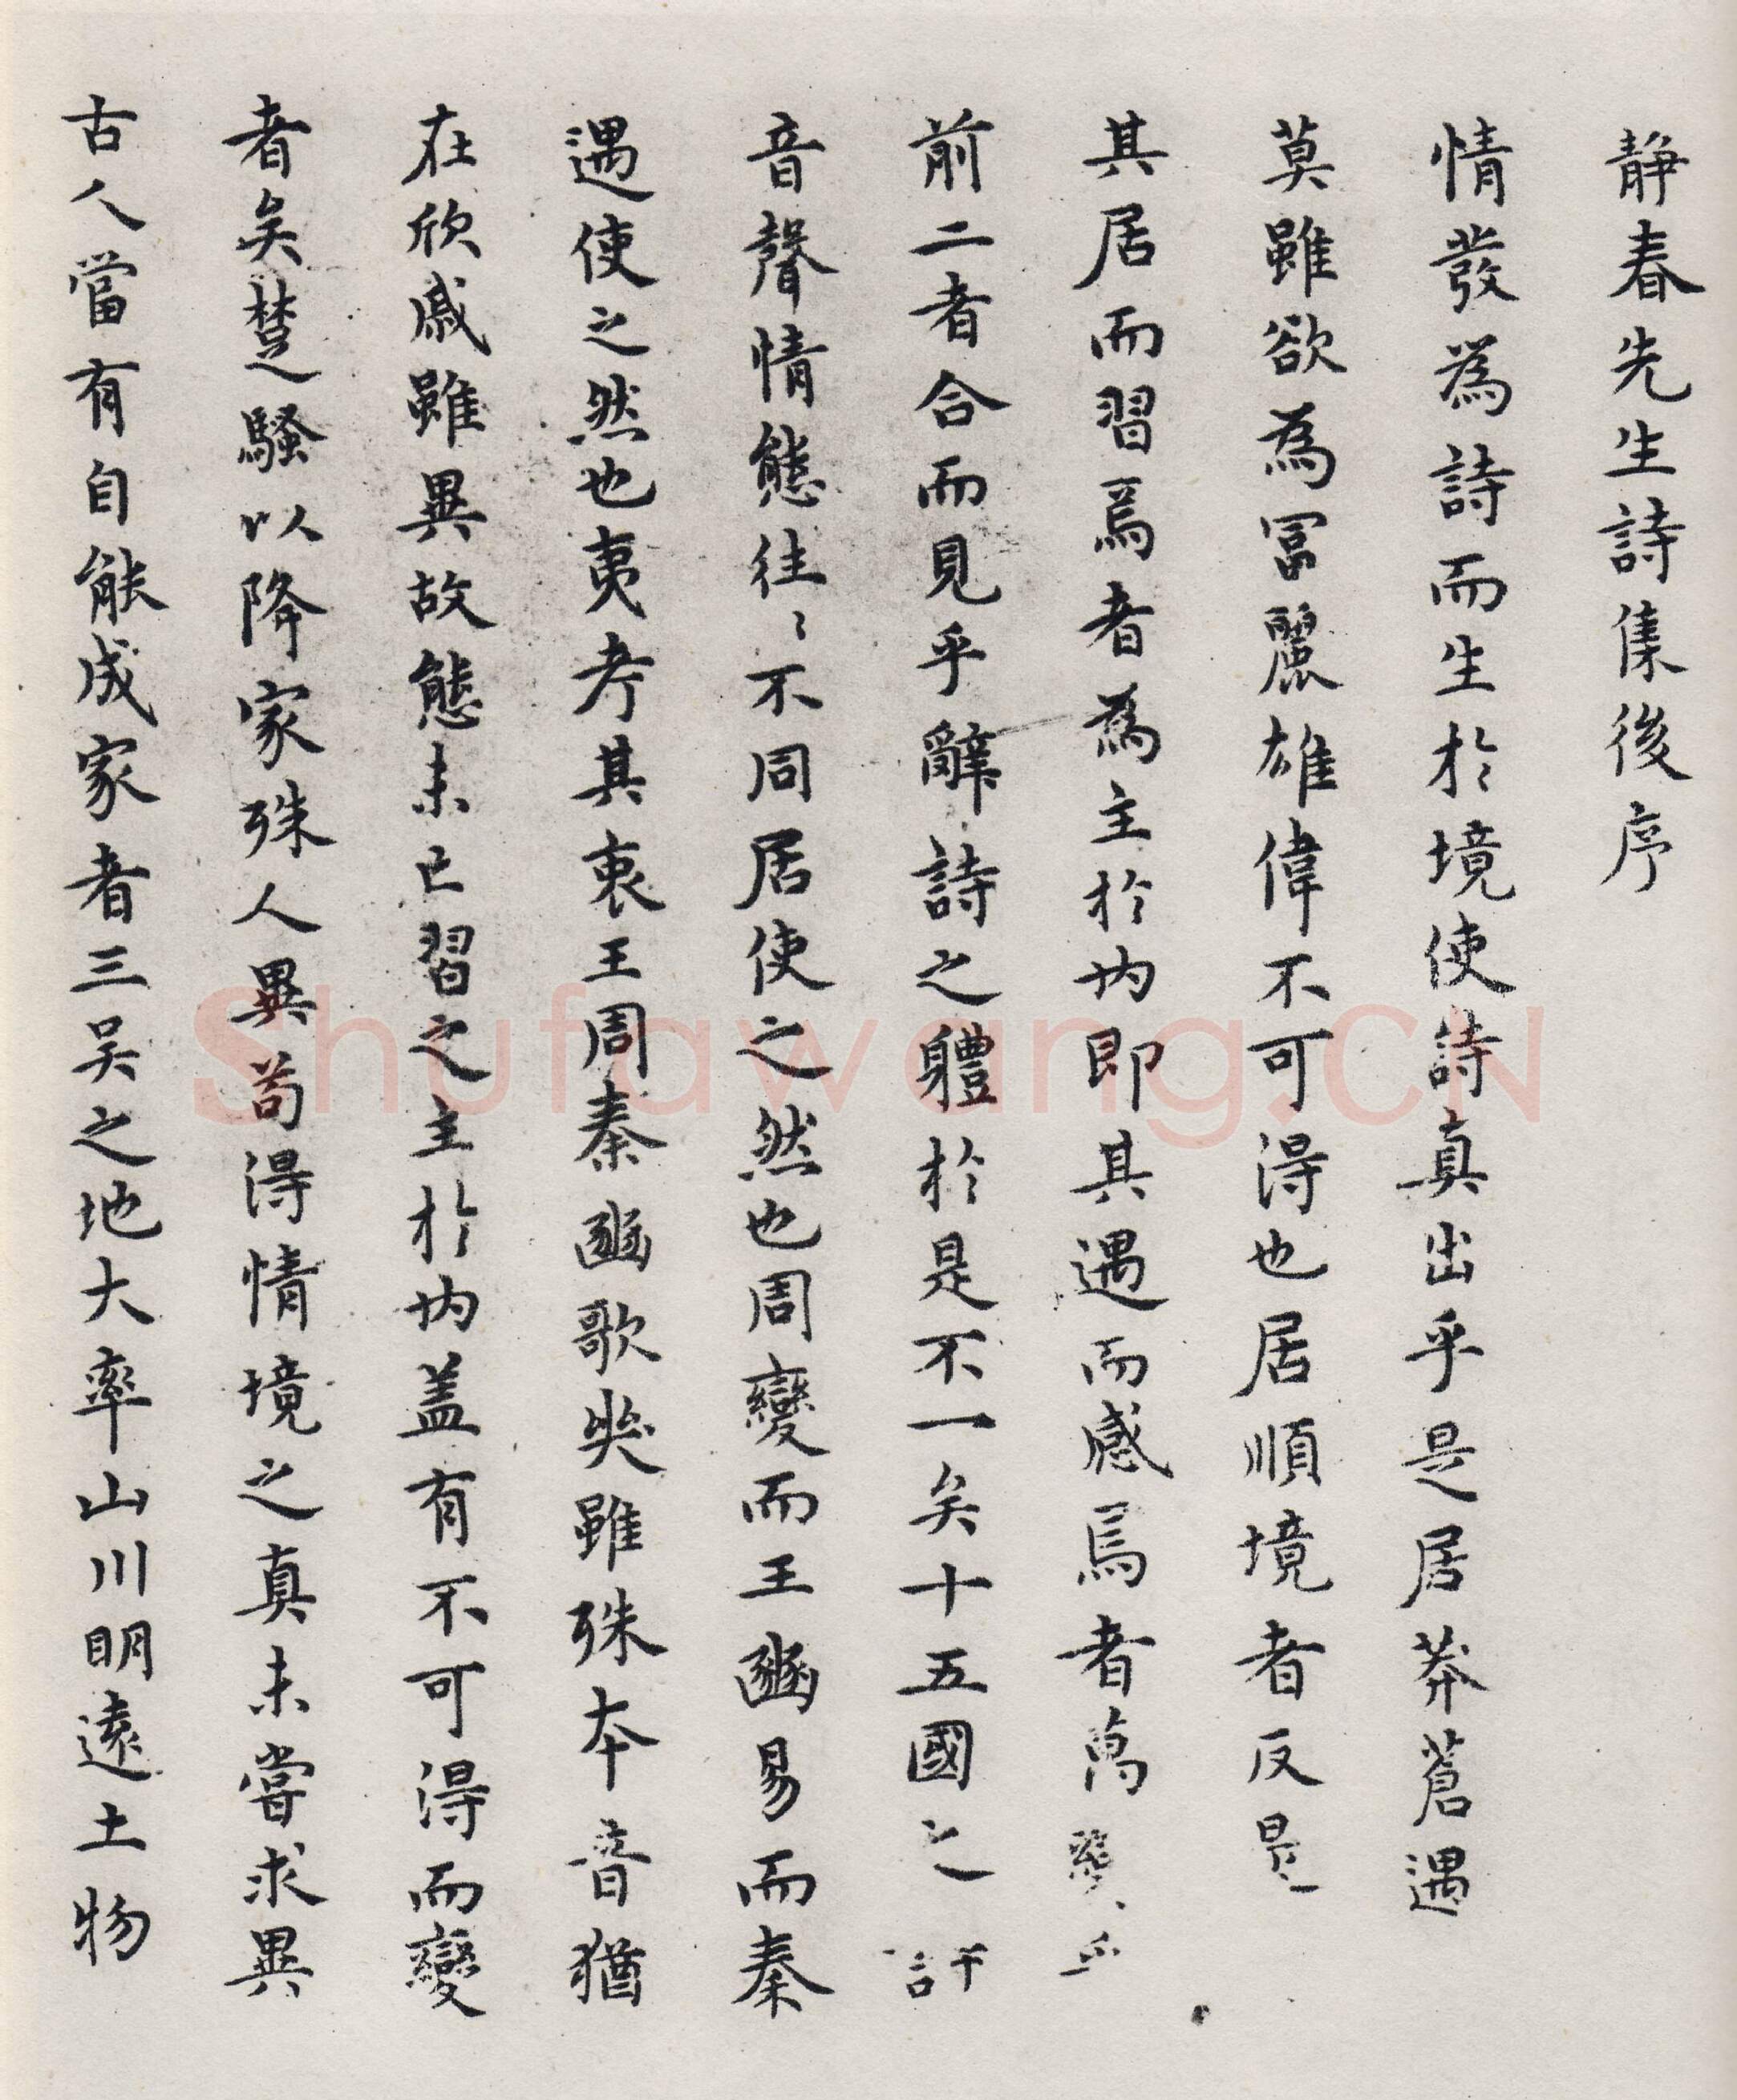 静春先生詩集後序
情發為詩而生於境使詩真出乎是居莽蒼遇
莫雖欲為冨麗雄偉不可得也居順境者反是
其居而習焉者為主於内即其遇而感焉者萬變
前二者合而見乎辭詩之軆於是不一矣十五國之
音聲情態往〻不同居使之然也周變而王豳易而秦
遇使之然也夷考其衷王周秦豳歌哭雖殊本音猶
在欣戚雖異故態未亡習之主於内盖有不可得而變
者矣楚騷以降家殊人異苟得情境之真未嘗求異
古人當有自能成家者三吴之地大率山川明遠土物
Shufawang.CN